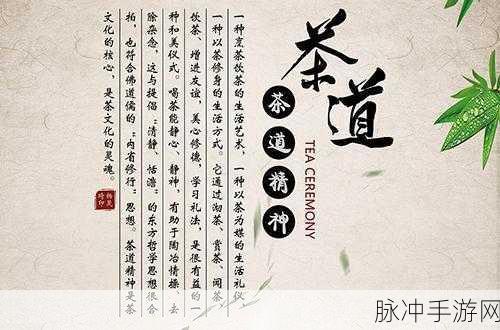 茶道
TEA CEREMONY
茶道精神
一种烹茶饮茶的生活艺术，一种以茶为媒的生活礼仪
一种以茶修身的生活方式。它通过沏茶、赏茶、闻
饮茶、增进友谊，美心修德，学习礼法，是很有益的一
种和美仪式。喝茶能静心、静神，有助于陶冶情操、去
除杂念，这与提倡“清静、恬澹”的东方哲学思想很合
拍，也符合佛道儒的“内省修行”思想。茶道精神是茶
文化的核心，是茶文化的灵魂。
脉冲手游网